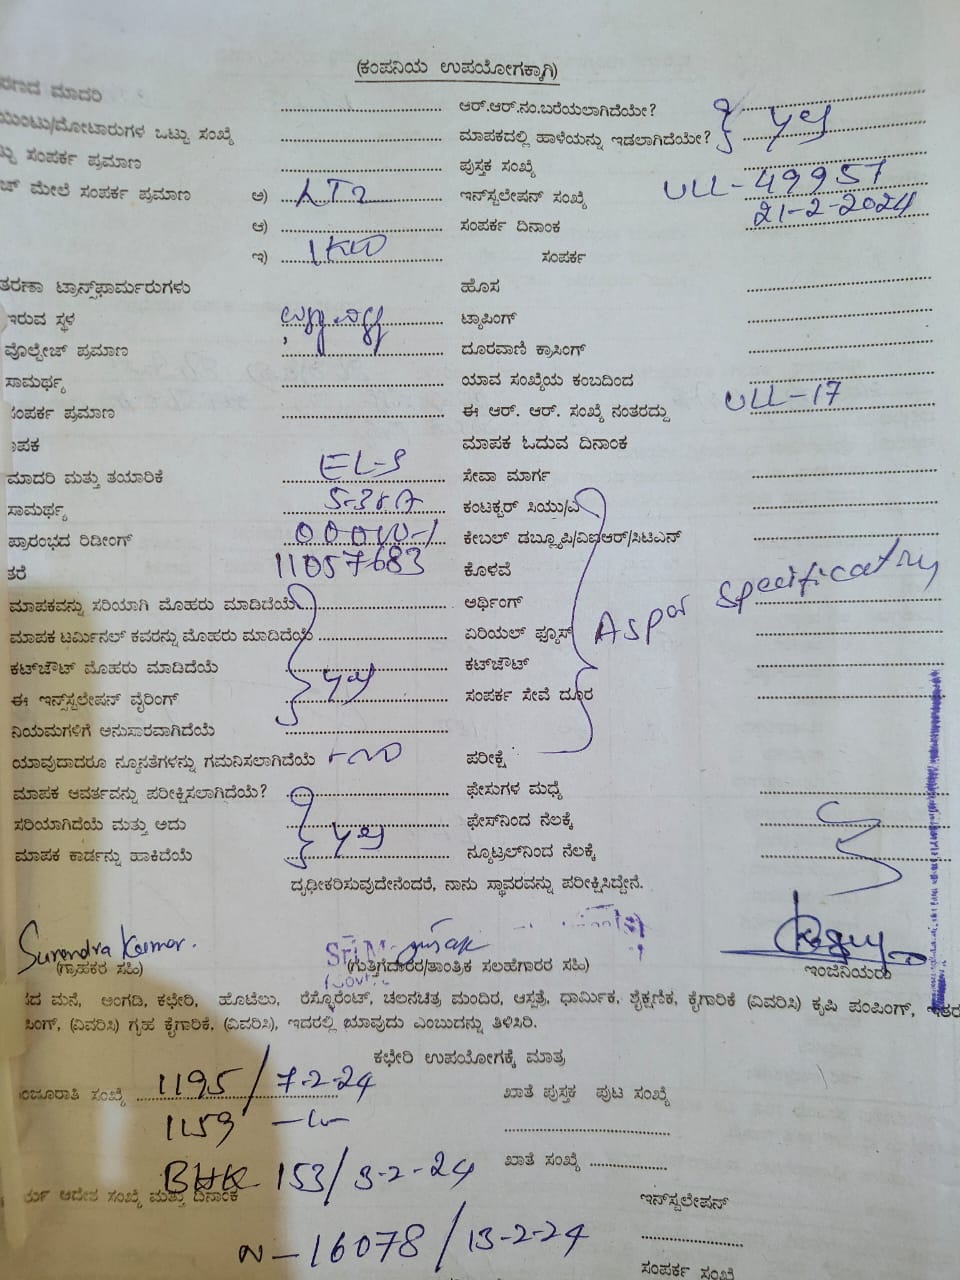 (ಕಂಪನಿಯ ಉಪಯೋಗಕ್ಕಾಗಿ)
ಮಾದರಿ ಆರ್.ಆರ್.ನಂ.ಬರೆಯಲಾಗಿದೆಯೇ?
ಒಟ್ಟು ಸಂಖ್ಯೆ ಮಾಪಕದಲ್ಲಿ ಹಾಳೆಯನ್ನು ಇಡಲಾಗಿದೆಯೇ? yes
ಸಂಪರ್ಕ ಪ್ರಮಾಣ ಪುಸ್ತಕ ಸಂಖ್ಯೆ
ಮೇಲೆ ಸಂಪರ್ಕ ಪ್ರಮಾಣ ಅ) LT2 ಇನ್‌ಸ್ಟಲೇಷನ್ ಸಂಖ್ಯೆ ULL-49957
ಆ) ಸಂಪರ್ಕ ದಿನಾಂಕ 21-2-2024
ಇ) 1KW ಸಂಪರ್ಕ
ಟ್ರಾನ್ಸ್‌ಫಾರ್ಮರುಗಳು ಹೊಸ
ಇರುವ ಸ್ಥಳ ಟ್ಯಾಪಿಂಗ್
ವೋಲ್ಟೇಜ್ ಪ್ರಮಾಣ ದೂರವಾಣಿ ಕ್ರಾಸಿಂಗ್
ಸಾಮರ್ಥ್ಯ ಯಾವ ಸಂಖ್ಯೆಯ ಕಂಬದಿಂದ
ಸಂಪರ್ಕ ಪ್ರಮಾಣ ಈ ಆರ್. ಆರ್. ಸಂಖ್ಯೆ ನಂತರದ್ದು ULL-17
ಮಾಪಕ ಓದುವ ದಿನಾಂಕ
ಮಾದರಿ ಮತ್ತು ತಯಾರಿಕೆ ಸೇವಾ ಮಾರ್ಗ
ಸಾಮರ್ಥ್ಯ ಕಂಟಕ್ಟರ್ ಸಿಯು/ಎ
ಪ್ರಾರಂಭದ ರಿಡೀಂಗ್ ಕೇಬಲ್ ಡಬ್ಲ್ಯೂಪಿ/ವಿಐಆರ್/ಸಿಟಿಎಸ್
ತರೆ 11057683 ಕೊಳವೆ
ಮಾಪಕವನ್ನು ಸರಿಯಾಗಿ ಮೊಹರು ಮಾಡಿದೆಯೆ ಅರ್ಥಿಂಗ್
ಮಾಪಕ ಟರ್ಮಿನಲ್ ಕವರನ್ನು ಮೊಹರು ಮಾಡಿದೆಯೆ ಏರಿಯಲ್ ಫ್ಯೂಸ್ As per specification
ಕಟ್‌ಔಟ್ ಮೊಹರು ಮಾಡಿದೆಯೆ ಕಟ್‌ಔಟ್
ಈ ಇನ್‌ಸ್ಟಲೇಷನ್ ವೈರಿಂಗ್ yes ಸಂಪರ್ಕ ಸೇವೆ ದೂರ
ನಿಯಮಗಳಿಗೆ ಅನುಸಾರವಾಗಿದೆಯೆ
ಯಾವುದಾದರೂ ನ್ಯೂನತೆಗಳನ್ನು ಗಮನಿಸಲಾಗಿದೆಯೆ NO ಪರೀಕ್ಷೆ
ಮಾಪಕ ಆವರ್ತವನ್ನು ಪರೀಕ್ಷಿಸಲಾಗಿದೆಯೆ? ಫೇಸುಗಳ ಮಧ್ಯೆ
ಸರಿಯಾಗಿದೆಯೆ ಮತ್ತು ಅದು ಫೇಸ್‌ನಿಂದ ನೆಲಕ್ಕೆ
ಮಾಪಕ ಕಾರ್ಡನ್ನು ಹಾಕಿದೆಯೆ yes ನ್ಯೂಟ್ರಲ್‌ನಿಂದ ನೆಲಕ್ಕೆ
ದೃಢೀಕರಿಸುವುದೇನೆಂದರೆ, ನಾನು ಸ್ಥಾವರವನ್ನು ಪರೀಕ್ಷಿಸಿದ್ದೇನೆ.
Surendra Kumar.
(ಗ್ರಾಹಕರ ಸಹಿ) (ಗುತ್ತಿಗೆದಾರರ/ತಾಂತ್ರಿಕ ಸಲಹೆಗಾರರ ಸಹಿ) ಇಂಜಿನಿಯರರ
ಮನೆ, ಅಂಗಡಿ, ಕಛೇರಿ, ಹೊಟೆಲು, ರೆಸ್ಟೋರೆಂಟ್, ಚಲನಚಿತ್ರ ಮಂದಿರ, ಆಸ್ಪತ್ರೆ, ಧಾರ್ಮಿಕ, ಶೈಕ್ಷಣಿಕ, ಕೈಗಾರಿಕೆ (ವಿವರಿಸಿ) ಕೃಷಿ ಪಂಪಿಂಗ್, ಇತರ
(ವಿವರಿಸಿ) ಗೃಹ ಕೈಗಾರಿಕೆ, (ವಿವರಿಸಿ), ಇದರಲ್ಲಿ ಯಾವುದು ಎಂಬುದನ್ನು ತಿಳಿಸಿರಿ.
ಕಛೇರಿ ಉಪಯೋಗಕ್ಕೆ ಮಾತ್ರ
ಸಂಖ್ಯೆ 1195/7-2-24 ಖಾತೆ ಪುಸ್ತಕ ಪುಟ ಸಂಖ್ಯೆ
1159
153/3-2-24 ಖಾತೆ ಸಂಖ್ಯೆ
ಆದೇಶ ಸಂಖ್ಯೆ ಮತ್ತು ದಿನಾಂಕ ಇನ್‌ಸ್ಟಲೇಷನ್
16078/13-2-24
ಸಂಪರ್ಕ